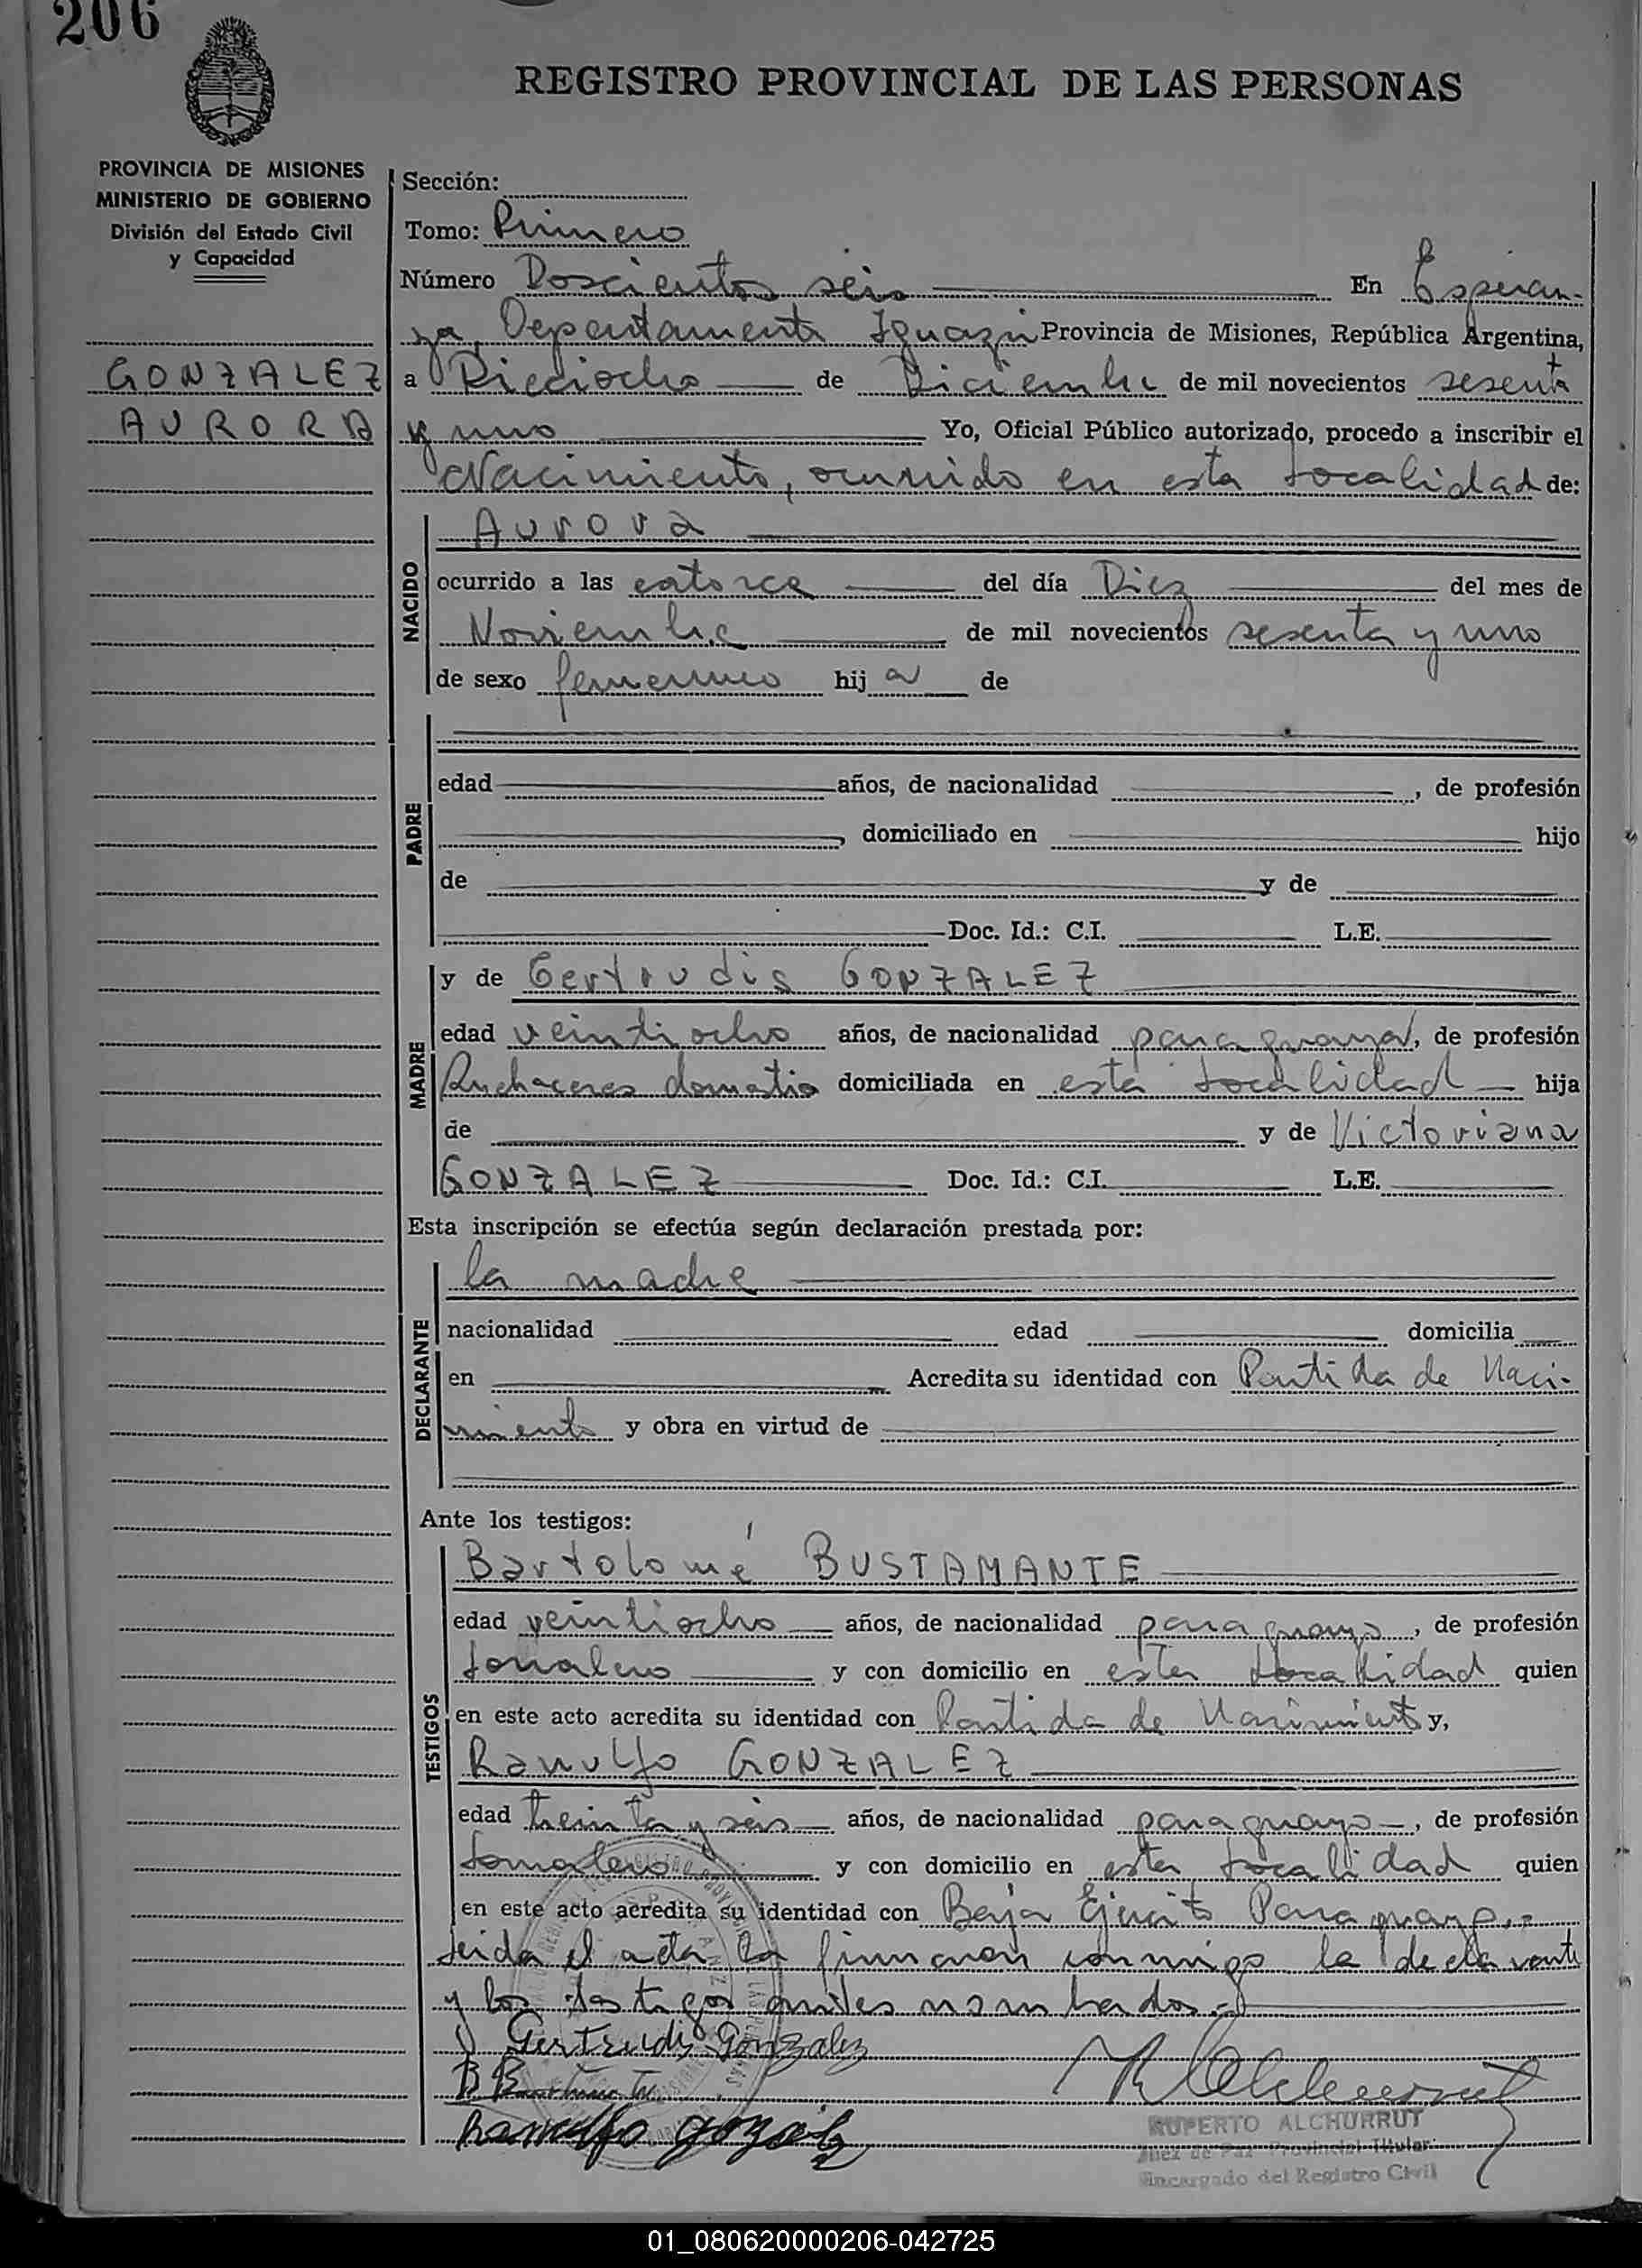 206
REGISTRO PROVINCIAL DE LAS PERSONAS
PROVINCIA DE MISIONES
MINISTERIO DE GOBIERNO
División del Estado Civil
y Capacidad
GONZALEZ
AURORA
Sección:
Tomo: Primero
Número Doscientos seis En Esperan-
za, Departamento Iguazú Provincia de Misiones, República Argentina,
a Dieciocho de Diciembre de mil novecientos sesenta
y uno Yo, Oficial Público autorizado, procedo a inscribir el
Nacimiento, ocurrido en esta localidad de:
NACIDO
Aurora
ocurrido a las catorce del día Diez del mes de
Noviembre de mil novecientos sesenta y uno
de sexo femenino hij a de
PADRE
edad años, de nacionalidad , de profesión
, domiciliado en hijo
de y de
Doc. Id.: C.I. L.E.
MADRE
y de Gertrudis GONZALEZ
edad veintiocho años, de nacionalidad paraguaya, de profesión
Quehaceres domestio domiciliada en esta localidad hija
de y de Victoriana
GONZALEZ Doc. Id.: C.I. L.E.
Esta inscripción se efectúa según declaración prestada por:
DECLARANTE
la madre
nacionalidad edad domicilia
en Acredita su identidad con Partida de Naci-
miento y obra en virtud de
Ante los testigos:
TESTIGOS
Bartolomé BUSTAMANTE
edad veintiocho años, de nacionalidad paraguayo, de profesión
Jornalero y con domicilio en esta localidad quien
en este acto acredita su identidad con Partida de Nacimiento y,
Ranulfo GONZALEZ
edad treinta y seis años, de nacionalidad paraguayo, de profesión
Jornalero y con domicilio en esta localidad quien
en este acto acredita su identidad con Baja Ejercito Paraguayo.-
Leida el acta la firmaron conmigo la declarante
y los testigos antes nombrados.-
Gertrudis Gonzalez
Ranulfo gozalez
RUPERTO ALCHURRUT
Juez de Paz Provincial Titular
Encargado del Registro Civil
01_080620000206-042725